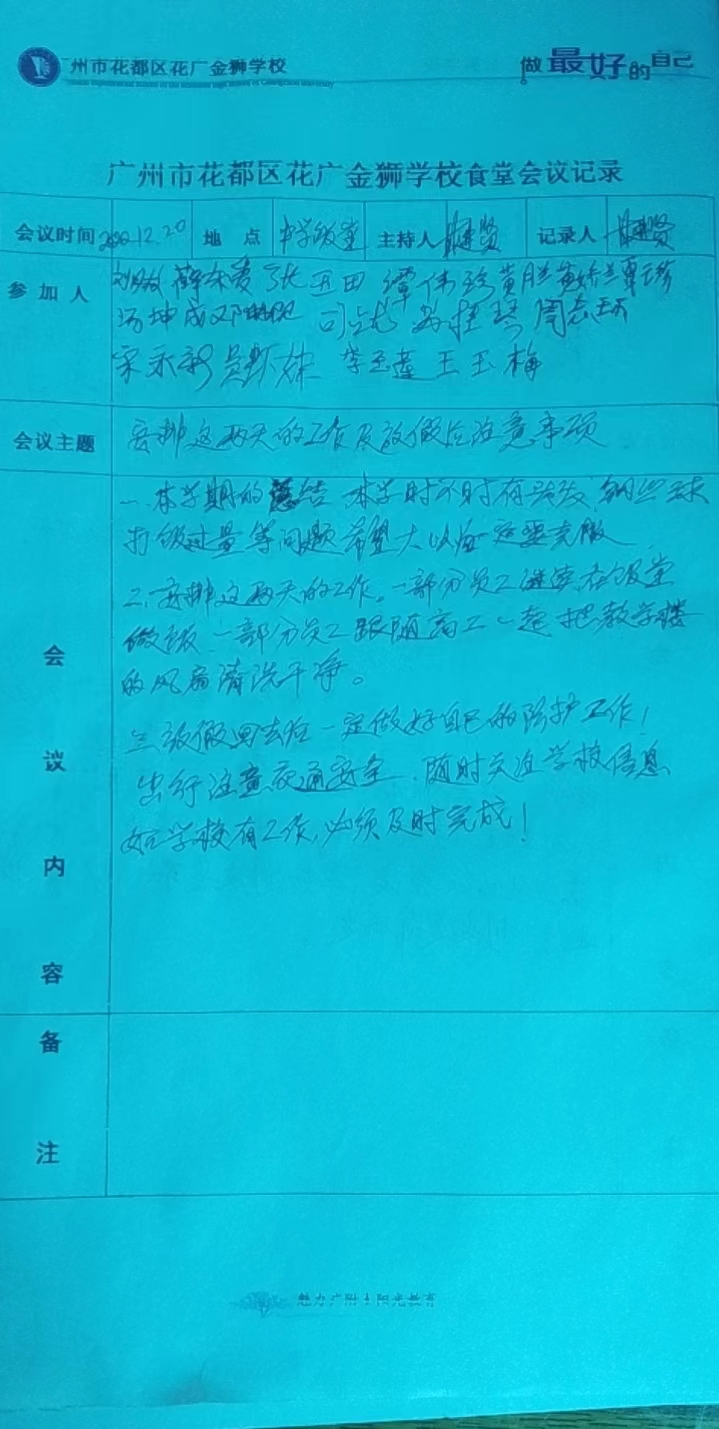 广州市花都区花广金狮学校
做最好的自己
广州市花都区花广金狮学校食堂会议记录
会议时间 2022.12.20 地点 中学饭堂 主持人 记录人
参加人 张玉田 谭伟玲
周志
宋永新 李玉莲 王玉梅
会议主题 安排这两天的工作及放假后注意事项
一、本学期的总结 本学时不时有头发、钢丝球
打饭过量等问题希望大以后一定要克服
二、安排这两天的工作。一部分员工继续在饭堂
做饭 一部分员工跟随高工一起把教学楼
的风扇清洗干净。
三放假回去后一定做好自己的防护工作！
出行注意交通安全 随时关注学校信息
如学校有工作，必须及时完成！
会议内容
备注
魅力广附 阳光教育